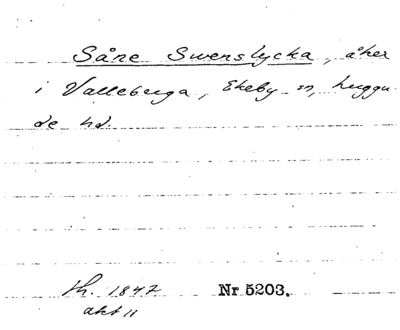 Såne Swenslycka, åker
i Valleberga, Ekeby sn, Luggu-
de hd.
Lh. 1847 Nr 5203.
akt 11